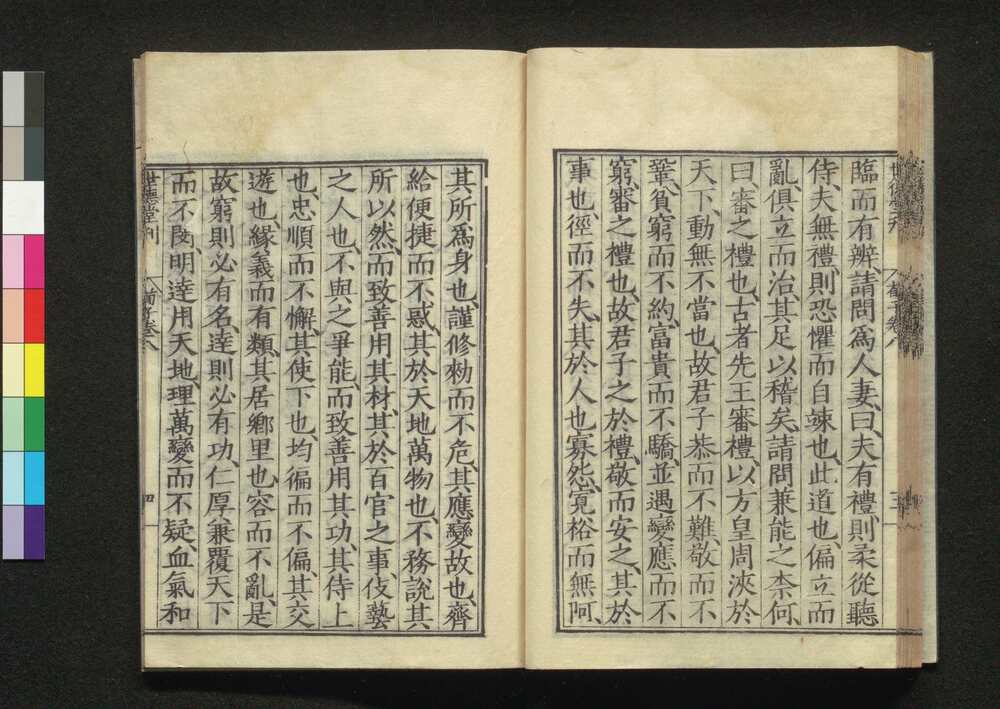 臨而有辨、請問爲人妻、曰夫有禮、則柔從聽
侍、夫無禮、則恐懼而自竦也、此道也、偏立而
亂、俱立而治、其足以稽矣、請問兼能之柰何、
曰審之禮也、古者先王審禮、以方皇周浹於
天下、動無不當也、故君子恭而不難、敬而不
鞏、貧窮而不約、富貴而不驕、並遇變應而不
窮、審之禮也、故君子之於禮、敬而安之、其於
事也、徑而不失、其於人也、寡怨寬裕而無阿、
其所爲身也、謹修勑而不危、其應變故也、齊
給便捷而不惑、其於天地萬物也、不務說其
所以然、而致善用其材、其於百官之事、伎藝
之人也、不與之爭能、而致善用其功、其侍上
也、忠順而不懈、其使下也、均徧而不偏、其交
遊也、緣義而有類、其居鄉里也、容而不亂、是
故窮則必有名、達則必有功、仁厚兼覆天下
而不閔、明達用天地理萬變而不疑、血氣和
世德堂刊
荀子卷八
四